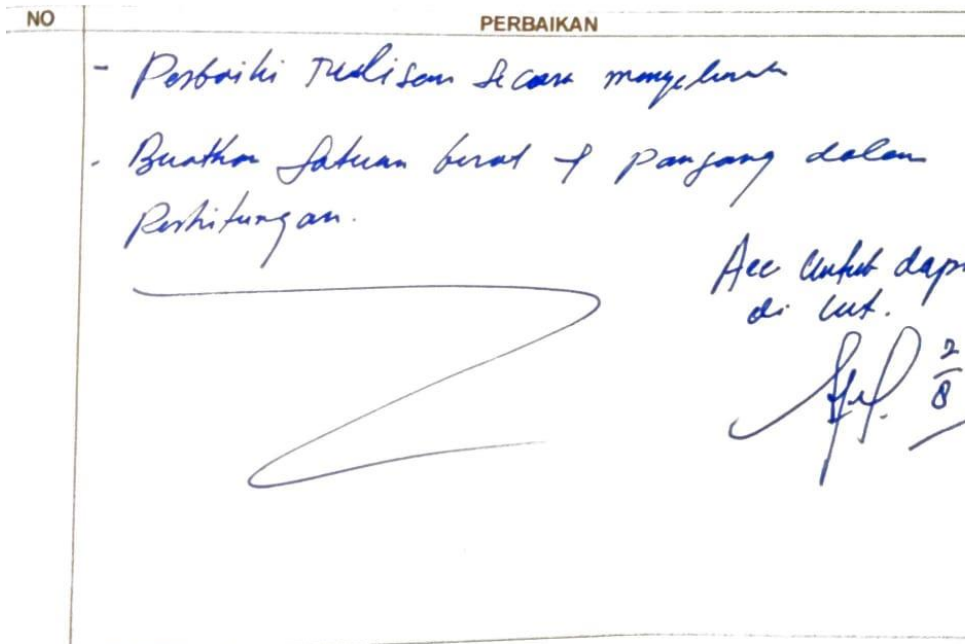 NO PERBAIKAN
- Perbaiki Tulisan secara menyeluruh
- Buatkan satuan berat & panjang dalam
Perhitungan.
Acc untuk dapa
di
2
8